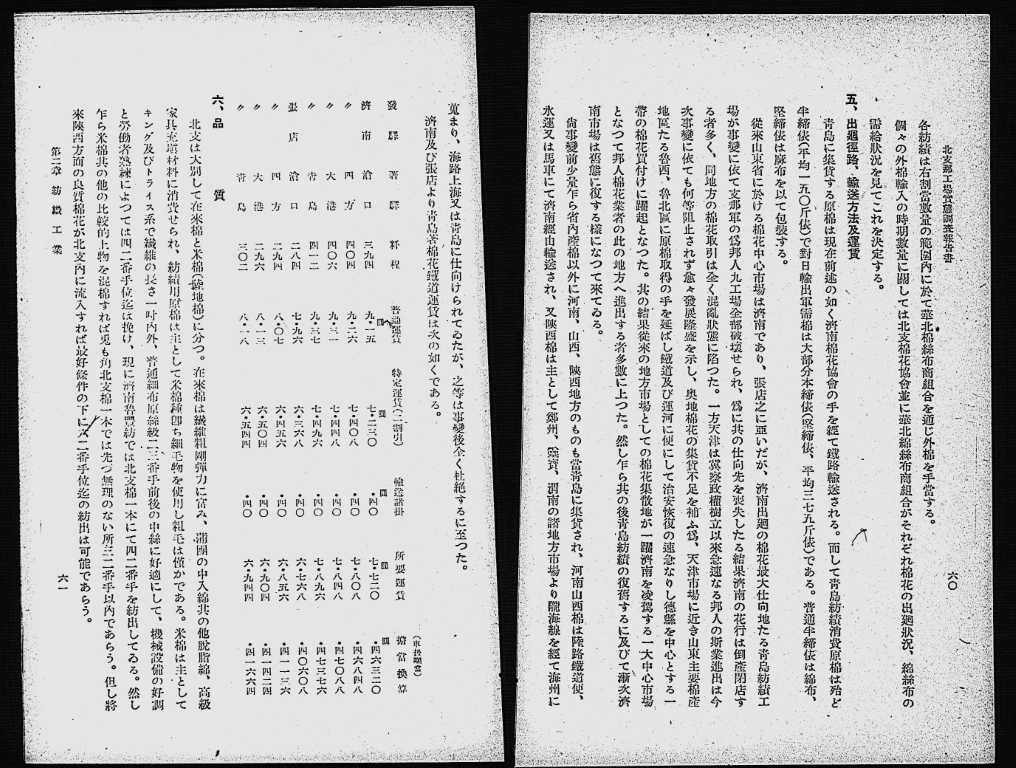 北支那工場實態調査報告書
六〇
各紡績は右割當數量の範圍內に於て華北棉絲布商組合を通じ外棉を手當する。
個々の外棉輸入の時期數量に關しては北支棉花協會並に華北綿絲布商組合がそれぞれ棉花の出廻狀況、綿絲布の
需給狀況を見てこれを決定する。
五、出廻徑路、輸送方法及運賃
青島に集貨する原棉は現在前述の如く濟南棉花協會の手を經て鐵路輸送される。而して青島紡績消費原棉は殆ど
半締俵(平均一五〇斤俵)で對日輸出軍需棉は大部分本締俵(堅締俵、平均三七五斤俵)である。普通半締俵は綿布、
堅締俵は麻布を以て包裝する。
從來山東省に於ける棉花中心市場は濟南であり、張店之に亞いだが、濟南出廻の棉花最大仕向地たる青島紡績工
場が事變に依て支那軍の爲邦人九工場全部破壞せられ、爲に其の仕向先を喪失したる結果濟南の花行は倒產閉店す
る者多く、同地方の棉花取引は全く混亂狀態に陷つた。一方天津は冀察政權樹立以來急速なる邦人の斯業進出は今
次事變に依ても何等阻止されず愈々發展隆盛を示し、奧地棉花の集貨不足を補ふ爲、天津市場に近き山東主要棉產
地區たる魯西、魯北區に原棉取得の手を延ばし鐵道及び運河に便にして治安恢復の速急なりし德縣を中心とする一
帶の棉花買付けに躍起となつた。其の結果從來の地方市場としての棉花集散地が一躍濟南を凌駕する一大中心市場
となつて邦人棉花業者の此の地方へ進出する者多數に上つた。然し乍ら其の後青島紡績の復舊するに及びて漸次濟
南市場は舊態に復する樣になつて來てゐる。
尙事變前少量乍ら省內產棉以外に河南、山西、陝西地方のものも當青島に集貨され、河南山西棉は陸路鐵道便、
水運又は馬車にて濟南經由輸送され、又陝西棉は主として鄭州、靈寶、渭南の諸地方市場より隴海線を經て海州に
蒐まり、海路上海又は青島に仕向けられてゐたが、之等は事變後全く杜絕するに至つた。
濟南及び張店より青島著棉花鐵道運賃は次の如くである。
發驛 著驛 粁程 普通運賃 特定運賃(二割引) 輸送諸掛 所要運賃 擔當換算
圓 圓 圓 圓
濟南 滄口 三九四 九・一五 七・三二〇 ・四〇 七・七二〇 ・四六三二〇
〃 四方 四〇〇 九・二六 七・四〇八 ・四〇 七・八〇八 ・四六八四八
〃 大港 四〇六 九・三一 七・四四八 ・四〇 七・八四八 ・四七〇八八
〃 青島 四一二 九・三七 七・四九六 ・四〇 七・八九六 ・四七三七六
張店 滄口 二八四 七・九六 六・三六八 ・四〇 六・七六八 ・四〇六〇八
〃 四方 二九四 八・〇七 六・四五六 ・四〇 六・八五六 ・四一一三六
〃 大港 二九六 八・一三 六・五〇四 ・四〇 六・九〇四 ・四一四二四
〃 青島 三〇二 八・一八 六・五四四 ・四〇 六・九四四 ・四一六六四
六、品質
北支は大別して在來棉と米棉(陸地棉)に分つ。在來棉は纖維粗剛彈力に富み、蒲團の中入綿其の他脫脂綿、高級
家具充塡材料に消費せられ、紡績用原棉は主として米棉種卽ち細毛物を使用し粗毛は僅かである。米棉は主として
キング及びトライス系で纖維の長さ一吋內外、普通細布原絲級二三番手前後の中絲に好適にして、機械設備の好調
と勞働者熟練によつては四二番手位迄は挽け、現に濟南魯豐紡では北支棉一本にて四二番手を紡出してゐる。然し
乍ら米棉其の他の比較的上物を混棉すれば兎も角北支棉一本では先づ無理のない所三二番手以內であらう。但し將
來陝西方面の良質棉花が北支內に流入すれば最好條件の下に六〇番手位迄の紡出は可能であらう。
第二章 紡織工業
六一